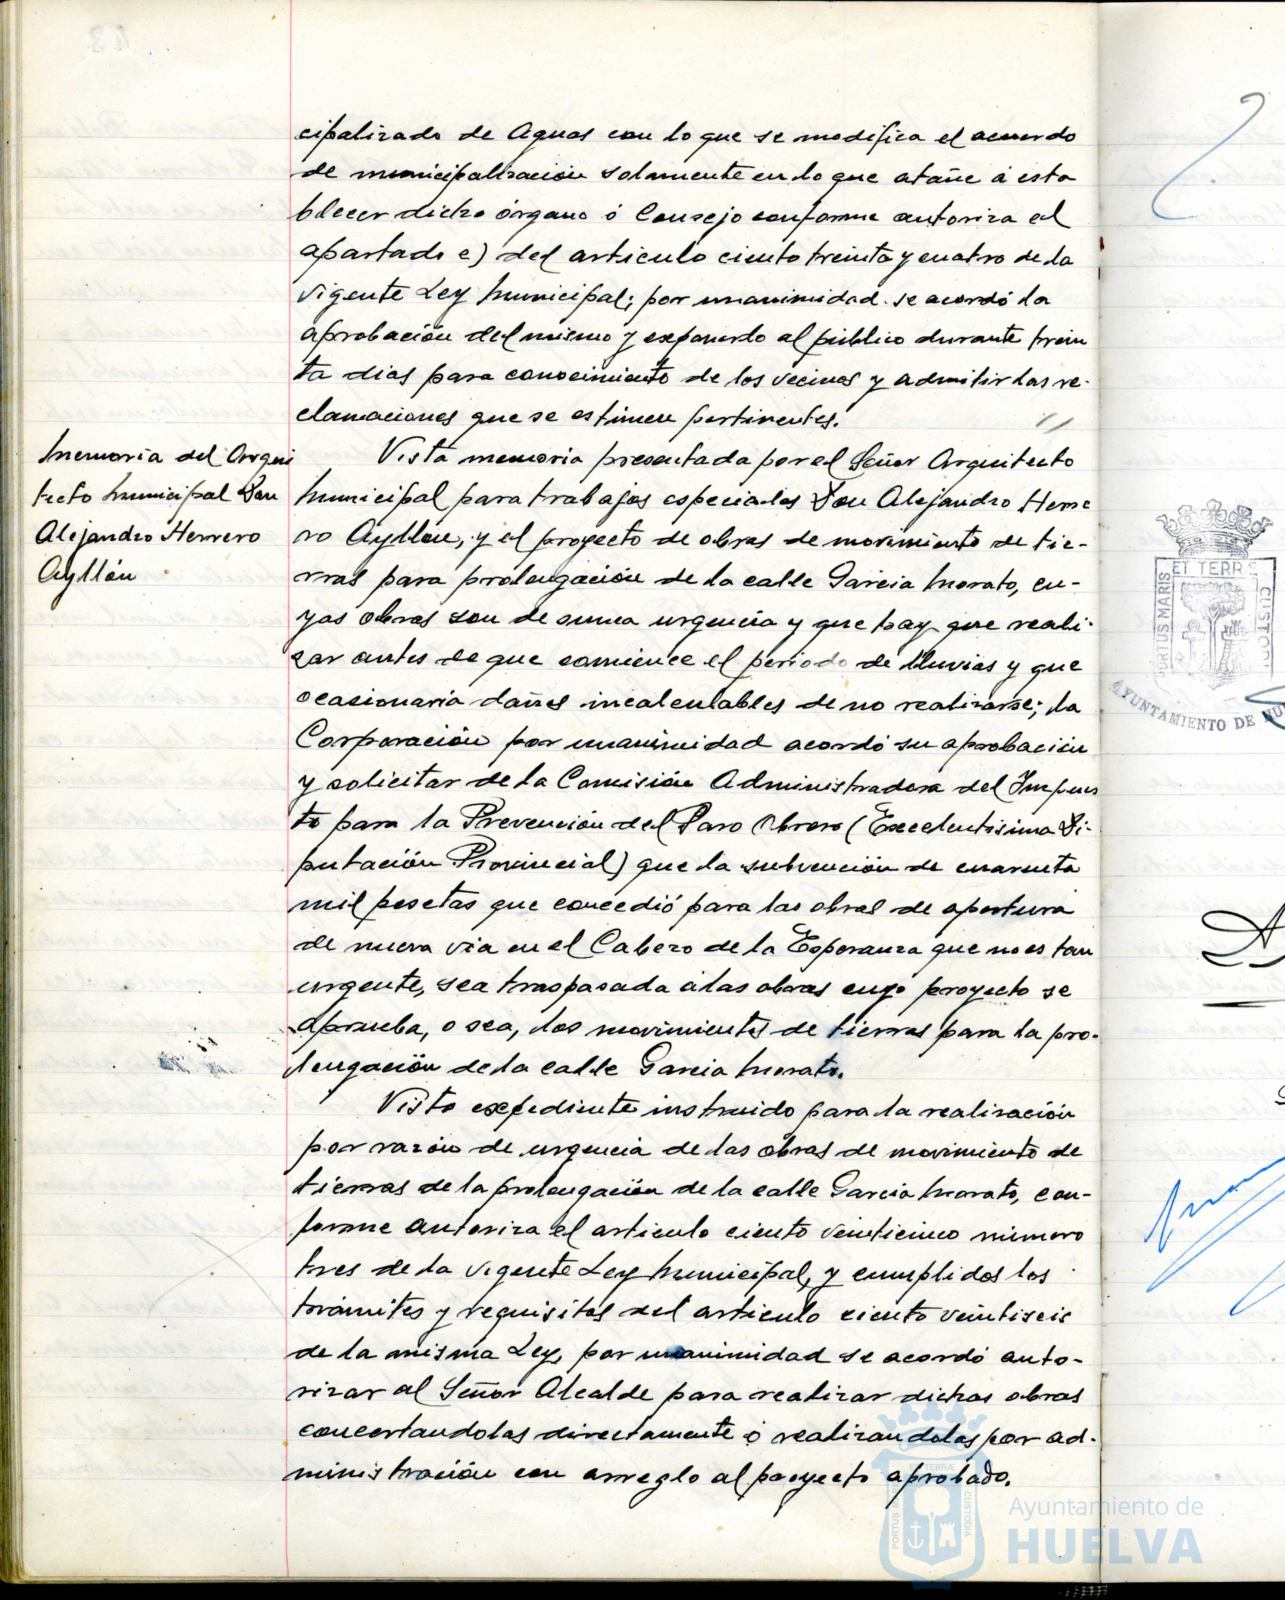 cipalizado de Aguas con lo que se modifica el acuerdo
de municipalización solamente en lo que atañe á esta
blecer dicho órgano ó Consejo conforme autoriza el
apartado e) del articulo ciento treinta y cuatro de la
vigente Ley Municipal; por unanimidad se acordó la
aprobación del mismo y exponerlo al público durante trein
ta dias para conocimiento de los vecinos y admitir las re-
clamaciones que se estimen pertinentes.
Memoria del Arqui
tecto Municipal Don
Alejandro Herrero
Ayllón
Vista memoria presentada por el Señor Arquitecto
Municipal para trabajos especiales Don Alejandro Herre
ro Ayllón, y el proyecto de obras de movimiento de tie-
rras para prolongación de la calle Garcia Morato, cu-
yas obras son de suma urgencia y que hay que reali-
zar antes de que comience el periodo de lluvias y que
ocasionaria daños incalculables de no realizarse; la
Corporación por unanimidad acordó su aprobación
y solicitar de la Comisión Administradora del Impues
to para la Prevención del Paro Obrero (Excelentisima Di-
putación Provincial) que la subvención de cuarenta
mil pesetas que concedió para las obras de apertura
de nueva via en el Cabezo de la Esperanza que no es tan
urgente, sea traspasada á las obras cuyo proyecto se
aprueba, o sea, los movimientos de tierras para la pro-
longación de la calle Garcia Morato.
Visto expediente instruido para la realización
por razón de urgencia de las obras de movimiento de
tierras de la prolongación de la calle Garcia Morato, con-
forme autoriza el articulo ciento veinticinco número
tres de la vigente Ley Municipal, y cumplidos los
trámites y requisitos del articulo ciento veintiseis
de la misma Ley, por unanimidad se acordó auto-
rizar al Señor Alcalde para realizar dichas obras
concertandolas directamente ó realizandolas por ad-
ministración con arreglo al proyecto aprobado.
PORTUS MARIS
ET TERRÆ
CUSTODIA
AYUNTAMIENTO DE HU
Ayuntamiento de
HUELVA